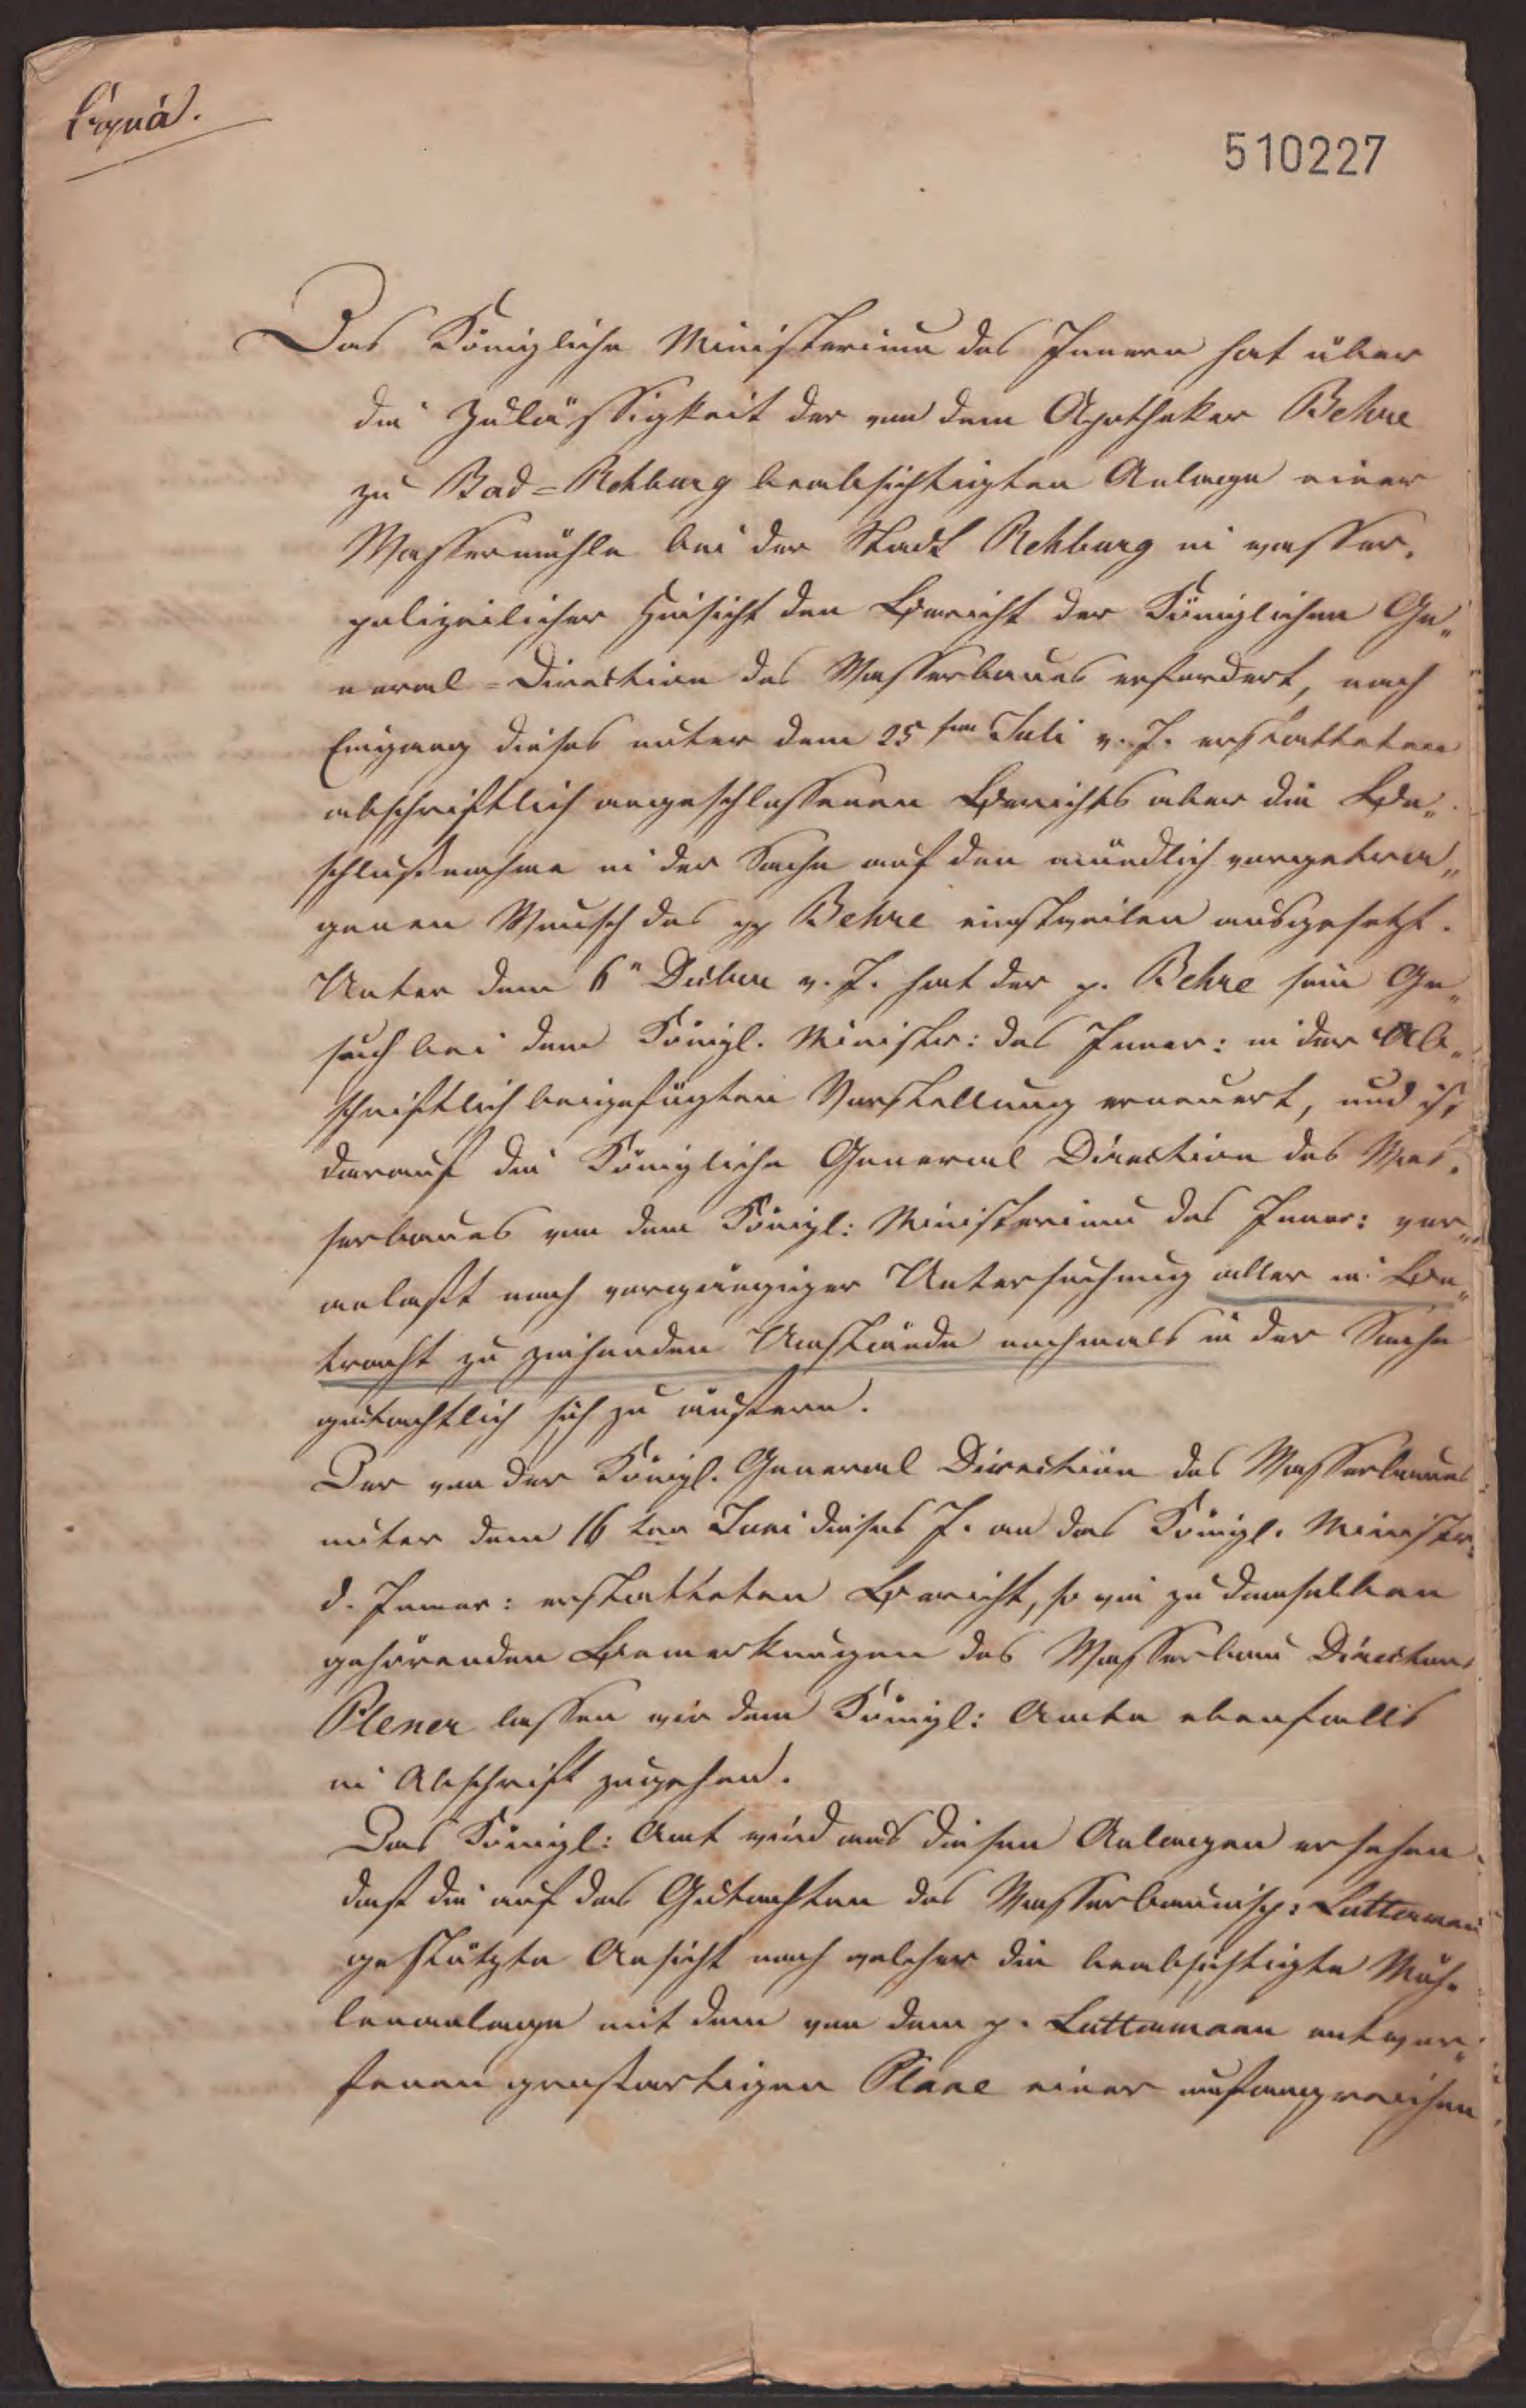 Copia.
510227
Das Königliche Ministerium des Innern hat über
die Zulässigkeit der von dem Apotheker Behre
zu Bad=Rehburg beabsichtigten Anlage einer
Wassermühle bei der Stadt Rehburg in wasser-
polizeilicher Hinsicht den Bericht der Königlichen Ge„
neral=Direction des Wasserbaues erfordert, nach
Eingang dieses unter dem 25sten Juli v. J. erstatteten
abschriftlich angeschlossenen Berichts aber die Be„
schlußnahme in der Sache auf den mündlich vorgetra„
genen Wunsch des pp Behre einstweilen ausgesetzt.
Unter dem 6n Decbre v. J. hat der p. Behre sein Ge„
such bei dem Königl. Ministr: des Inner: in der Ab„
schriftlich beigefügten Vorstellung erneuert, und ist
darauf die Königliche General Direction des Was-
serbaues von dem Königl: Ministerium des Inner: ver„
anlaßt nach vorgängiger Untersuchung aller in Be„
tracht zu ziehenden Umstände nochmals in der Sache
gutachtlich sich zu äußern.
Der von der Königl. General Direction des Wasserbaues
unter dem 16ten Juni dieses J. an das Königl. Ministr:
d. Inner: erstatteten Bericht, so wie zu demselben
gehörenden Bemerkungen des Wasserbau Directors
Plener lassen wir dem Königl: Amte ebenfalls
in Abschrift zugehen.
Das Königl: Amt wird aus diesen Anlagen ersehen
daß die auf das Gutachten des Wasserbauinsp: Luttermann
gestützte Ansicht nach welcher die beabsichtigte Müh-
lenanlage mit dem von dem p. Luttermann entwor„
fenen großartigen Plane einer umfangreichen